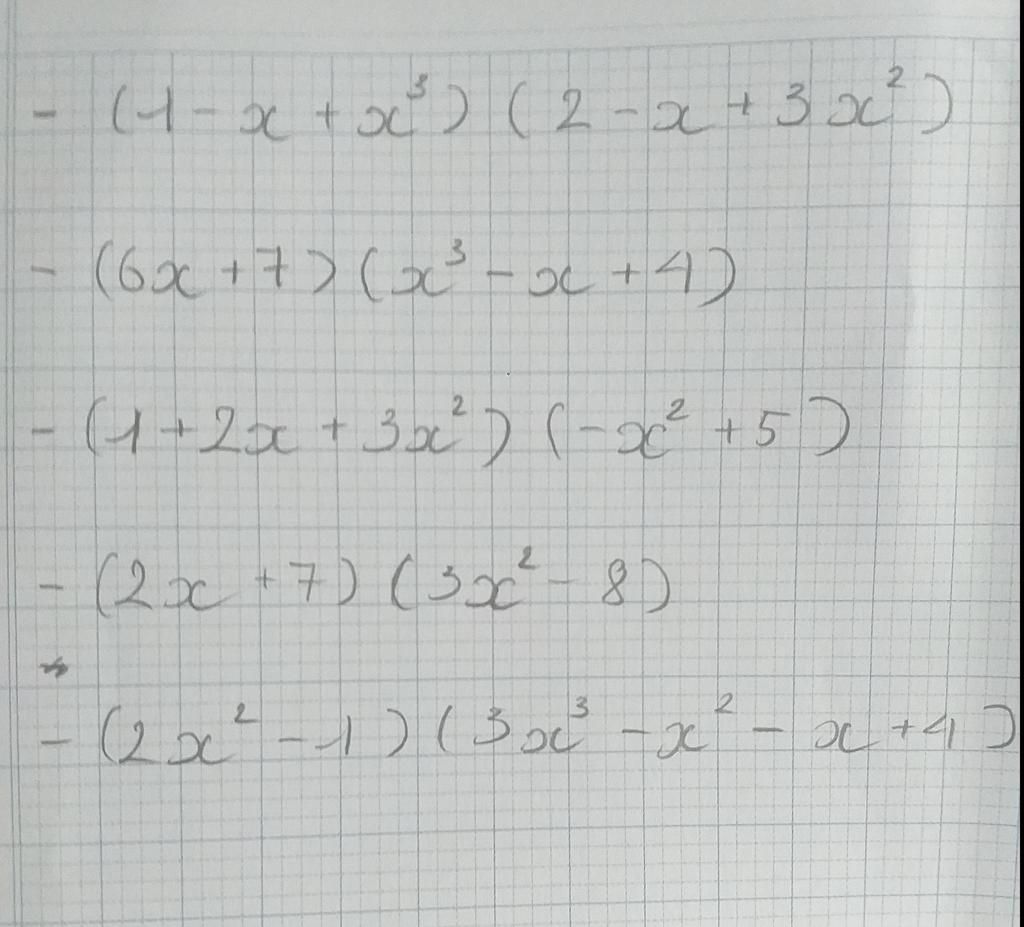 - (1 - x + x³) (2 - x + 3x²)
- (6x + 7) (x³ - x + 4)
- (1 + 2x + 3x²) (-x² + 5)
- (2x + 7) (3x² - 8)
- (2x² - 1) (3x³ - x² - x + 4)